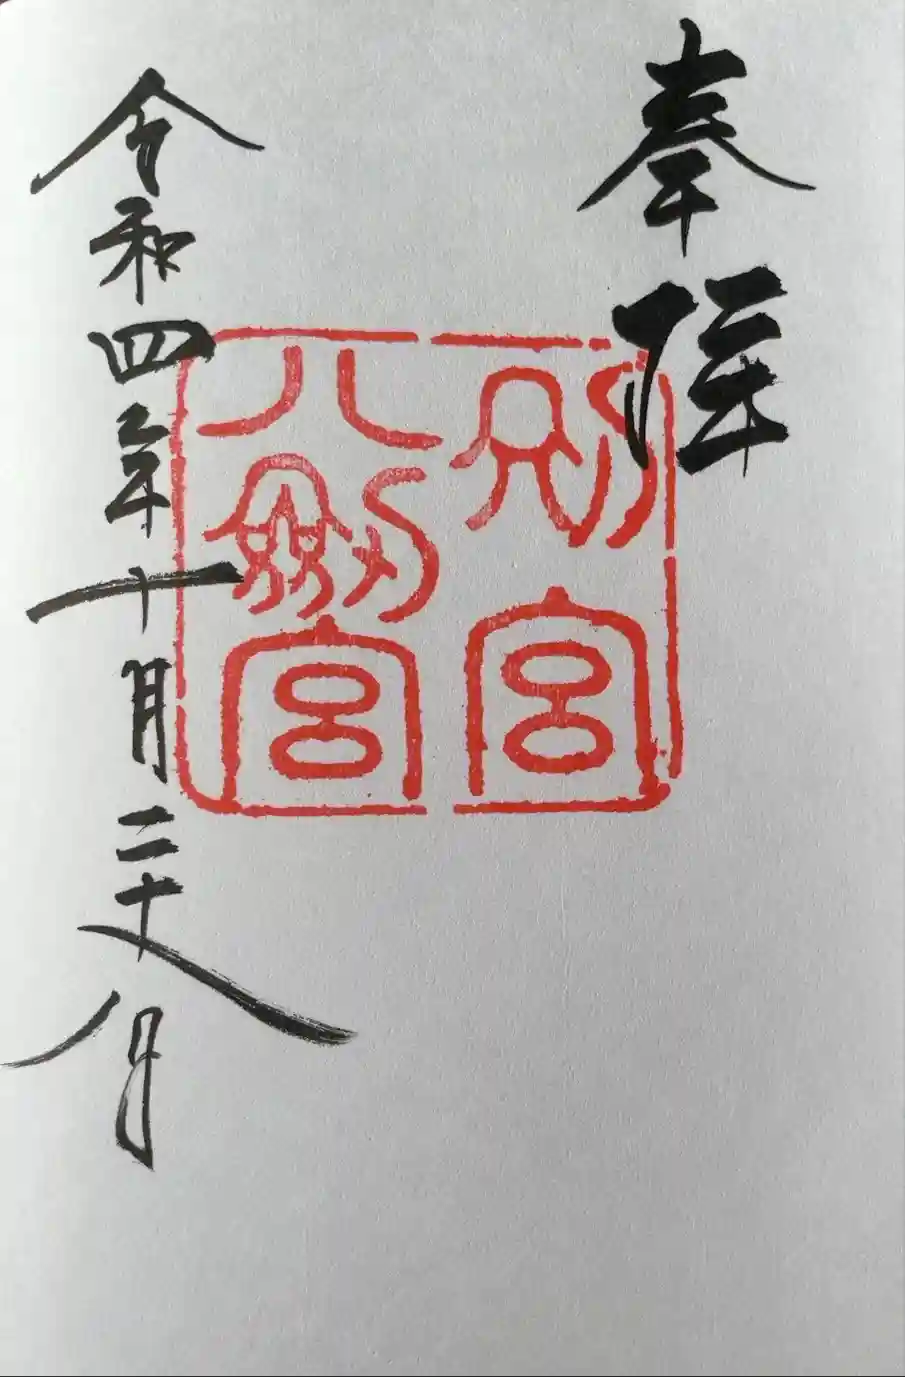 奉拝
別宮
八劔宮
令和四年十月二十八日